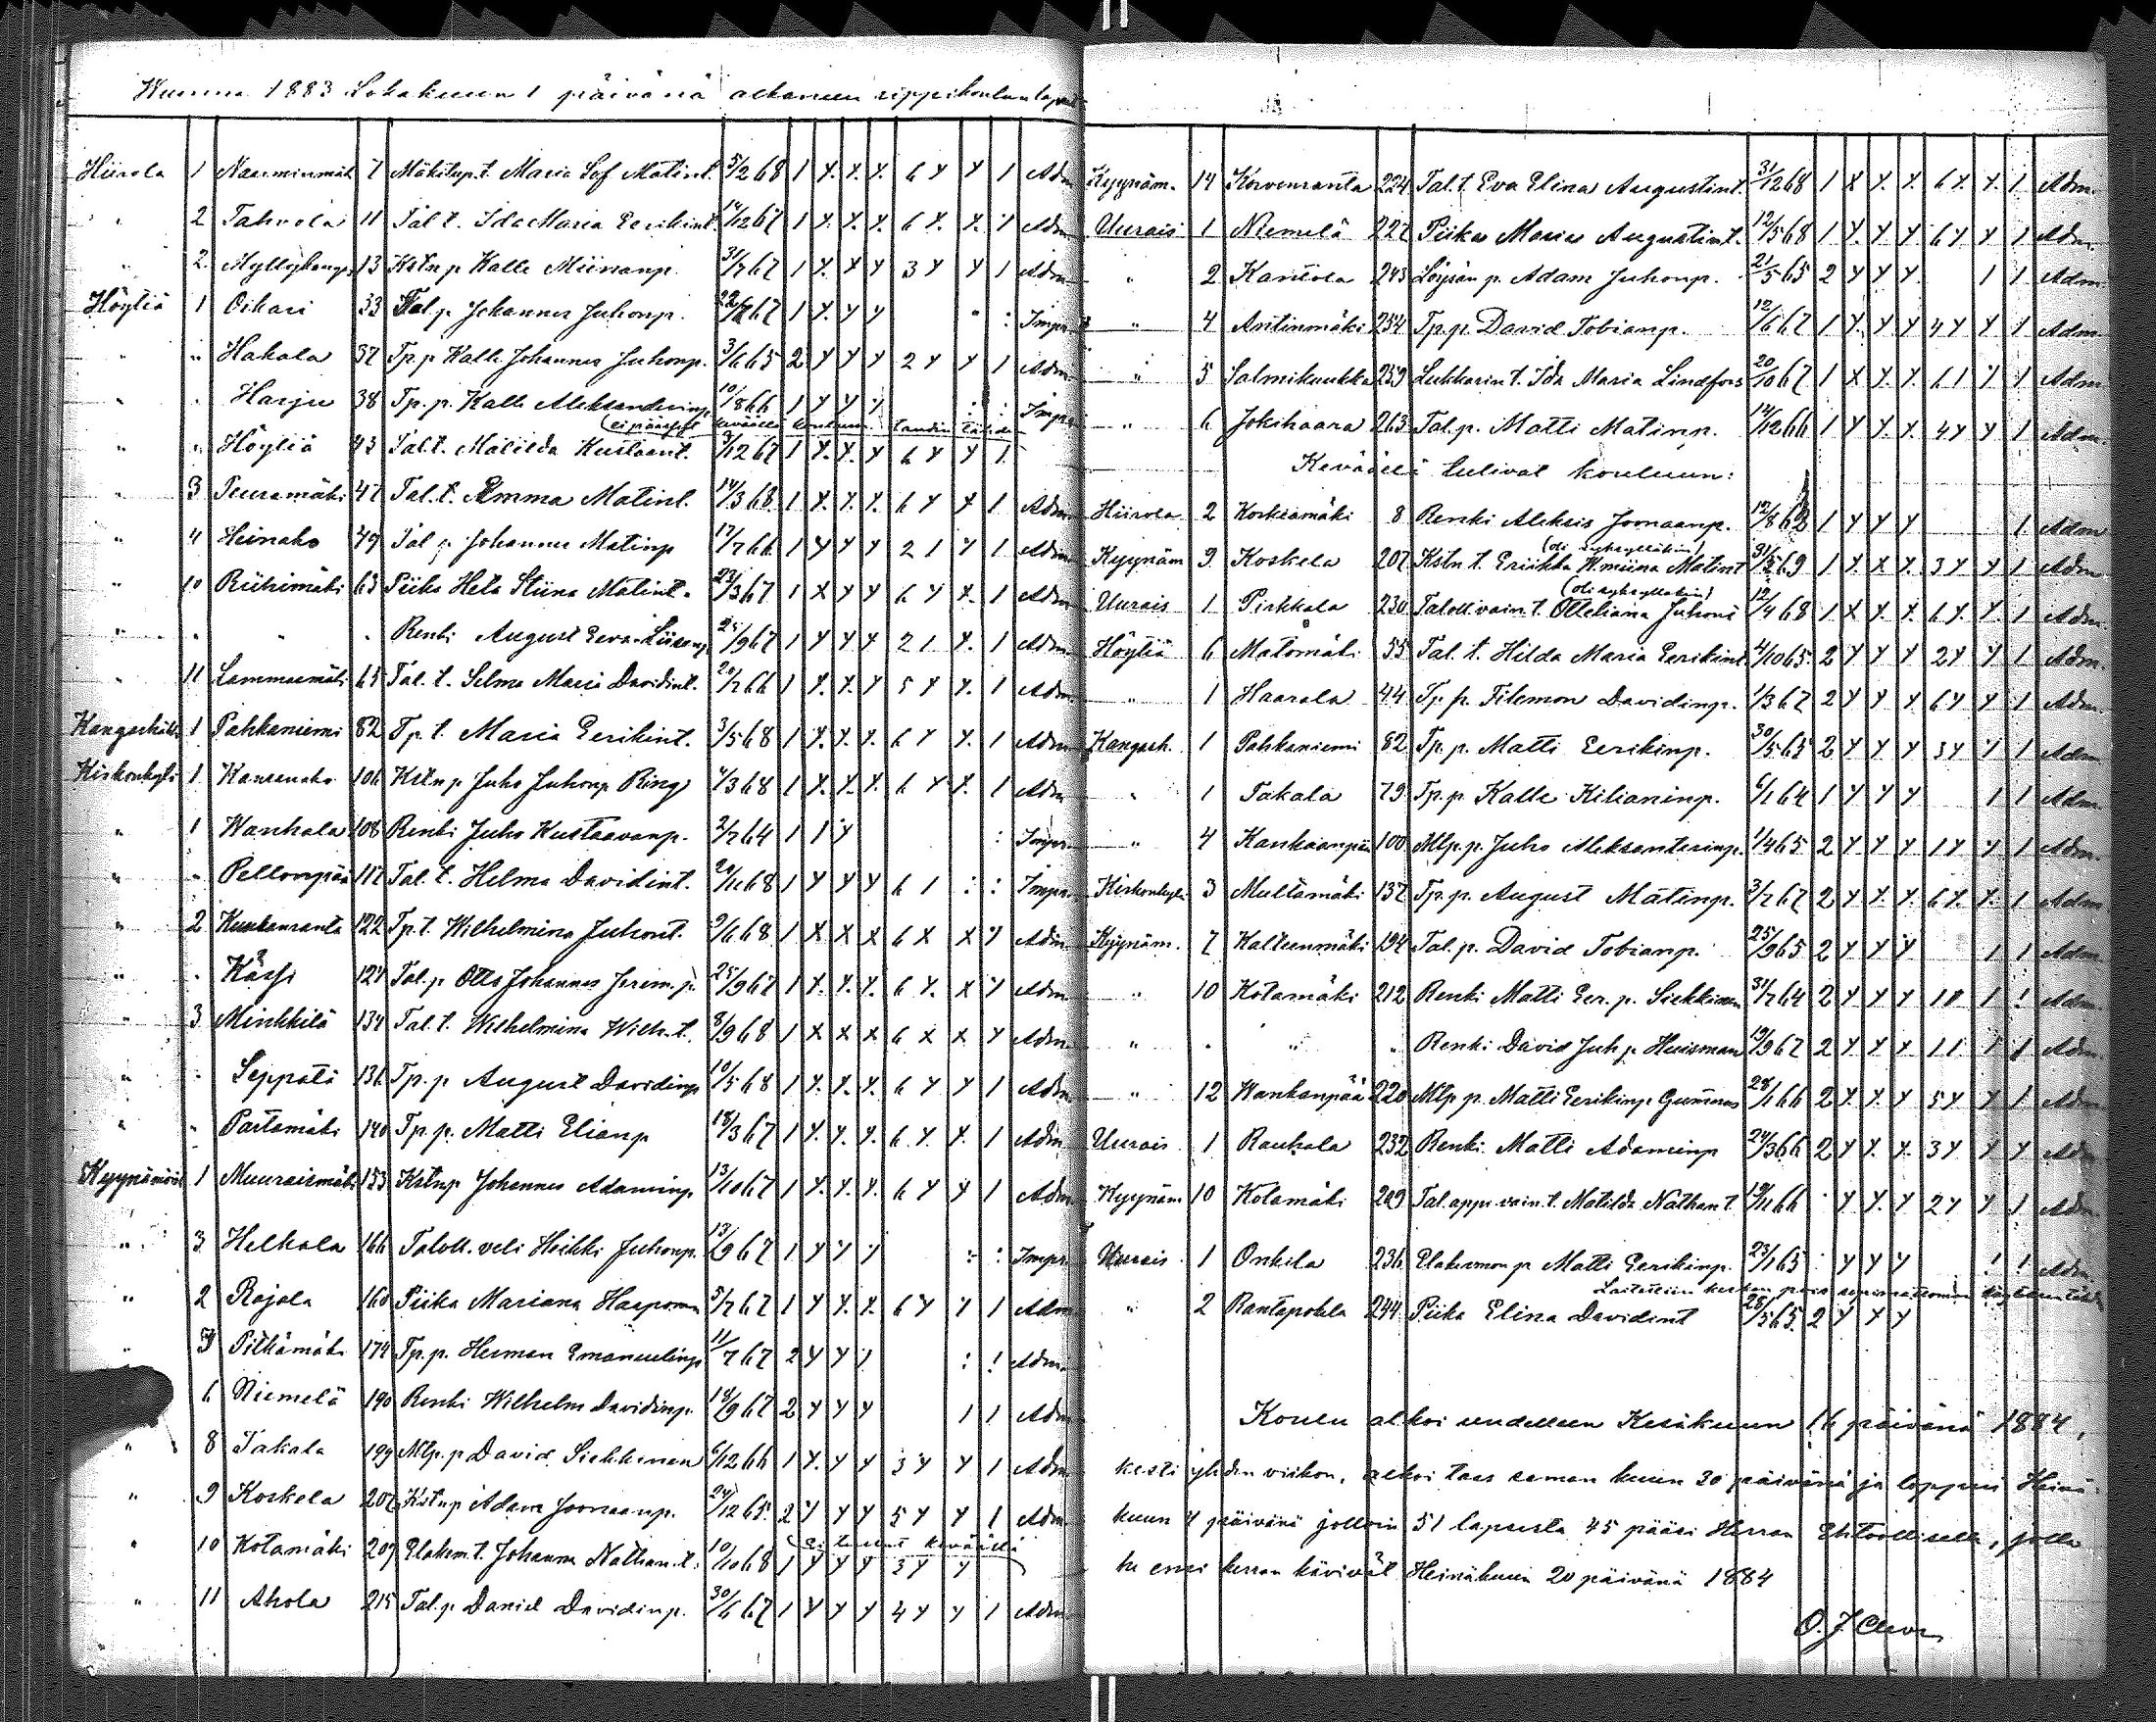 Wuonna 1883 Lokakuun 1 päivänä alkaneen rippikoulun lapset
Hiirola 1 7 Mäkitup.t. Maria Sof Matint. 5/2 68 1 Y. Y. Y. 6 Y Y 1 Adm.
" 2 Tahvola 11 Tal t. Ida Maria Eerikint. 14/12 67 1 Y. Y. Y. 6 Y. Y. Y Adm.
" 2 13 Kstn p Kalle Miinanp. 31/7 67 1 Y. Y Y 3 Y Y 1 Adm.
Höytiä 1 Oikari 33 Tal.p Johannes Juhonp. 67 1 Y. Y Y " : Impr.
" " Hakala 37 Tp.p Kalle Johannes Juhonp. 3/6 65 2 Y Y Y 2 Y Y 1 Adm.
" " Harju 38 Tp.p. Kalle Aleksanderinp. 10/8 66 1 Y Y Y : : Impr.
(ei päässyt keväällä kouluun taudin tähden)
" " Höytiä 43 Tal.t. Matilda Kustaant. 12 67 1 Y. Y. Y 6 Y Y 1
" 3 Peuramäki 47 Tal.t. Emma Matint. 14/3 68 1 Y. Y. Y. 6 Y Y 1 Adm.
" 4 Heinaho 49 Tal p Johannes Matinp 17/7 66 1 Y Y Y 2 1 Y 1 Adm.
" 10 Riihimäki 63 Piika Heta Stiina Matint. 23/3 67 1 X Y Y 6 Y Y. 1 Adm.
" " " " Renki August Eeva-Liisanp 25/9 67 1 Y Y Y 2 1 Y. 1 Adm.
" 11 Lammasmäki 65 Tal. t. Selma Maria Davidint. 20/7 66 1 Y. Y. Y 5 Y Y. 1 Adm.
Kangashäk. 1 Pahkaniemi 82 Tp.t. Maria Eerikint. 3/5 68 1 Y. Y. Y. 6 Y Y. 1 Adm.
Kirkonkylä 1 Kansanaho 106 Kstn p Juho Juhonp Ring 4/3 68 1 Y. Y. Y. 6 Y Y. 1 Adm.
" 1 Wanhala 108 Renki Juho Kustaavanp. 2/7 64 1 1 Y : Impr.
" " Pellonpää 117 Tal. t. Helma Davidint. 68 1 Y Y Y 6 1 : : Impr.
" 2 Kuukanranta 122 Tp.t. Wilhelmina Juhont. 2/6 68 1 X X X 6 X X Y Adm.
" " Kässi 127 Tal.p Otto Johannes Jerem.p. 25/9 67 1 Y. Y. Y. 6 Y. X Y Adm.
" 3 Minkkilä 134 Tal.t. Wilhelmina Wilh.t. 8/9 68 1 X X X 6 X X Y Adm.
" " Seppälä 136 Tp.p August Davidinp 10/5 68 1 Y. Y. Y. 6 Y Y 1 Adm.
" " Partamäki 140 Tp.p. Matti Elianp 18/3 67 1 Y. Y. Y. 6 Y. Y. 1 Adm.
Kyynämöis 1 Muuraismäki 153 Kstnp Johannes Adaminp. 13/10 67 1 Y. Y. Y. 6 Y Y 1 Adm.
" 3 Helkala 166 Taloll. veli Heikki Juhonp. 13/9 67 1 Y Y Y : : Impr.
" 2 Rajala 160 Piika Mariana Haaponen 5/7 67 1 Y Y. Y. 6 Y Y 1 Adm
" 5 Pitkämäki 174 Tp.p. Herman Emanuelinp 11/7 67 2 Y Y 1 : ! Adm.
6 Niemelä 190 Renki Wilhelm Davidinp. 18/9 67 2 Y Y Y 1 1 Adm
" 8 Takala 199 Mlp.p David Siekkinen 6/12 66 1 Y. Y Y 3 Y Y 1 Adm
" 9 Koskela 207 Kstnp Adam Joonaanp. 24/12 65. 2 Y Y Y 5 Y Y 1 Adm
(Ei tullut keväällä)
" 10 Kotamäki 209 Elakem.t. Johanna Nathan.t. 10/10 68 1 Y Y Y 3 Y Y
" 11 Ahola 215 Tal.p Daniel Davidinp. 30/6 67 1 Y Y Y 4 Y Y 1 Adm.
Kyynäm. 14 Korvenranta 224 Tal.t. Eva Elina Augustint. 31/12 68 1 X Y. Y. 6 Y. Y. 1 Adm.
Uurais 1 Niemelä 227 Piika Maria Augustint. 12/5 68 1 Y. Y. Y. 6 Y Y 1 Adm.
" 2 Kantola 243 Löysän p. Adam Juhonp. 21/5 65 2 Y Y Y 1 1 Adm.
" 4 Antinmäki 254 Tp.p. David Tobianp. 12/6 67 1 Y. Y Y 4 Y Y 1 Adm.
" 5 Salmikuukka 259 Lukkarin t. Ida Maria Lindfors 20/10 67 1 X Y. Y. 6 1 Y Y Adm
" 6 Jokihaara 263 Tal.p. Matti Matinp. 14/12 66 1 Y Y. Y. 4 Y Y 1 Adm.
Keväällä tulivat kouluun:
Hiirola 2 Korkiamäki 8 Renki Aleksis Joonaanp. 12/8 1 Y Y Y 1 Adm
(oli syksylläkin)
Kyynäm 9 Koskela 207 Kstn t. Eriikka Wmiina Matint 69 1 Y. X Y. 3 Y Y 1 Adm
(oli syksylläkin)
Uurais 1 Pirkkala 230 Taloll. vain. t. Otteliana Juhont 12/4 68 1 X. Y. Y. 6 Y. Y. 1 Adm
Höytiä 6 Matomäki 55 Tal. t. Hilda Maria Eerikint 4/10 65. 2 Y Y Y 2 Y Y 1 Adm.
" 1 Haarala 44 Tp. p. Filemon Davidinp. 1/3 67 2 Y Y Y 6 Y Y 1 Adm.
Kangash. 1 Pahkaniemi 82 Tp.p. Matti Eerikinp. 30/5 65 2 Y Y Y 3 Y Y 1 Adm
" 1 Takala 79 Tp.p. Kalle Kilianinp. 6/1 64 1 Y Y Y 1 1 Adm.
" 4 Kankaanpää 100 Mlp.p. Juho Aleksanterinp. 1/4 65 2 Y. Y. Y. 1 Y Y 1 Adm.
Kirkonkylä 3 Multamäki 137 Tp.p. August Matinp. 3/7 67 2 Y. Y. Y. 6 Y. Y. 1 Adm.
Kyynäm. 7 Kalteenmäki 194 Tal. p. David Tobianp. 25/9 65 2 Y Y Y 1 1 Adm.
" 10 Kotamäki 212 Renki Matti Eer. p. Siekkinen 31/7 64 2 Y Y Y 1 Y 1 ! Adm.
" " " " Renki David Juh p. Huisman 19/9 67 2 Y. Y. Y. 1 1 Y 1 Adm.
" 12 Wankanpää 220 Mlp p. Matti Eerikinp. Gummerus 28/1 66 2 Y. Y. Y. 5 Y Y 1 Adm
Uurais 1 Rauhala 232 Renki Matti Adaminp 24/3 66 2 Y Y. Y. 3 Y Y Y Adm
Kyynäm 10 Kotamäki 209 Tal. appr. vain. t. Matilda Nathant 19/1 66 Y. Y. Y 2 Y Y 1 Adm
Uurais 1 Onkila 236 Elakemon p Matti Eerikinp. 23/1 65 Y Y Y ! ! Adm.
Laitettiin kesken pois
" 2 Rantapohla 244 Piika Elina Davidint 28/5 65. 2 Y Y Y
Koulu alkoi uudelleen Kesäkuun 16 päivänä 1884,
kesti yhden viikon, alkoi taas saman kuun 30 päivänä ja loppui Heinä-
kuun 4 päivänä jolloin 51 lapsesta 45 pääsi Herran Ehtoolliselle, jolla
he ensi kerran kävivät Heinäkuun 20 päivänä 1884
O. J.